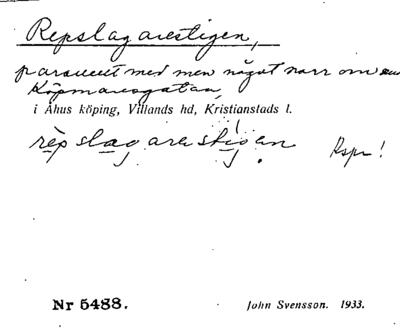 Repslagarestigen,
parallellt med men något norr om
Köpmansgatan,
i Åhus köping, Villands hd, Kristianstads l.
repslagarestigen Rspr!
Nr 5488. John Svensson. 1933.